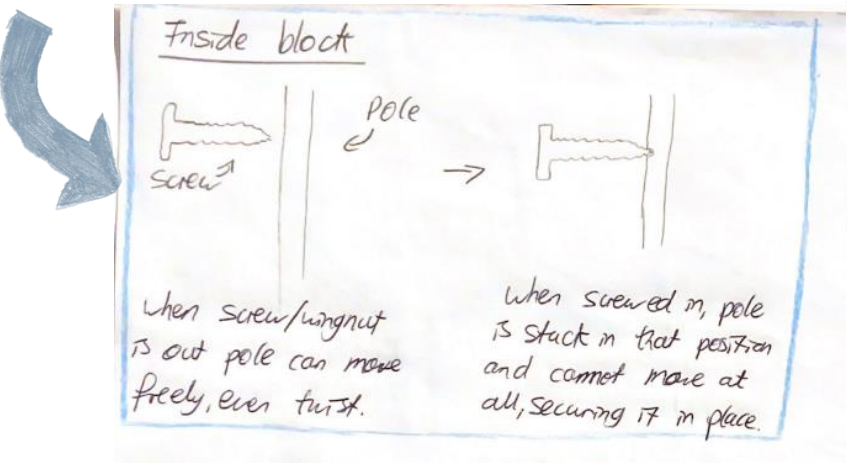 Inside block
Pole
screw
when screw/wingnut
is out pole can move
freely, even twist.
when screwed in, pole
is stuck in that position
and cannot move at
all, securing it in place.